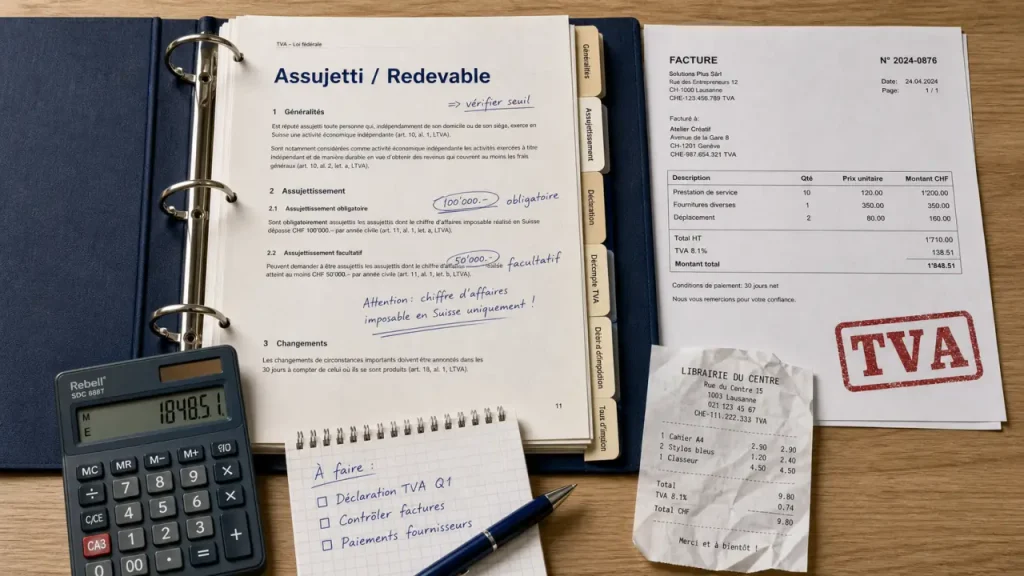 TVA – Loi fédérale
Assujetti / Redevable
=> vérifier seuil
1 Généralités
Est réputé assujetti toute personne qui, indépendamment de son domicile ou de son siège, exerce en
Suisse une activité économique indépendante (art. 10, al. 1, LTVA).
Sont notamment considérées comme activité économique indépendante les activités exercées à titre
indépendant et de manière durable en vue d'obtenir des revenus qui couvrent au moins les frais
généraux (art. 10, al. 2, let. a, LTVA).
2 Assujettissement
100'000.- obligatoire
2.1 Assujettissement obligatoire
Sont obligatoirement assujettis les assujettis dont le chiffre d'affaires imposable réalisé en Suisse
dépasse CHF 100'000.– par année civile (art. 11, al. 1, let. a, LTVA).
2.2 Assujettissement facultatif
50'000.- facultatif
Peuvent demander à être assujettis les assujettis dont le chiffre d'affaires
atteint au moins CHF 50'000.– par année civile (art. 11, al. 1, let. b, LTVA).
Attention : chiffre d'affaires
imposable en Suisse uniquement !
3 Changements
Les changements de circonstances importants doivent être annoncés dans les
30 jours à compter de celui où ils se sont produits (art. 18, al. 1, LTVA).
11
Généralités
Assujettissement
Déclaration
Décompte TVA
FACTURE
N° 2024-0876
Solutions Plus Sàrl
Rue des Entrepreneurs 12
CH-1000 Lausanne
CHE-123.456.789 TVA
Date: 24.04.2024
Page: 1 / 1
Facturé à:
Atelier Créatif
Avenue de la Gare 8
CH-1201 Genève
CHE-987.654.321 TVA
Description Qté Prix unitaire Montant CHF
Prestation de service 10 120.00 1'200.00
Fournitures diverses 1 350.00 350.00
Déplacement 2 80.00 160.00
Total HT 1'710.00
TVA 8.1% 138.51
Montant total 1'848.51
Conditions de paiement: 30 jours net
Nous vous remercions pour votre confiance.
TVA
LIBRAIRIE DU CENTRE
Rue du Centre 15
1003 Lausanne
021 123 45 67
CHE-111.222.333 TVA
1 Cahier A4 2.90 2.90
2 Stylos bleus 1.20 2.40
1 Classeur 4.50 4.50
Total 9.80
TVA 8.1% 0.74
Total CHF 9.80
Merci et à bientôt !
Rebell
SDC 888T
M
E
1848.51
MC MR M- M+
÷ 7 8 9 ×
C/CE 4 5 6 ×
CA3 1 2 3 +
0 00 . =
À faire :
Déclaration TVA Q1
Contrôler factures
Paiements fournisseurs